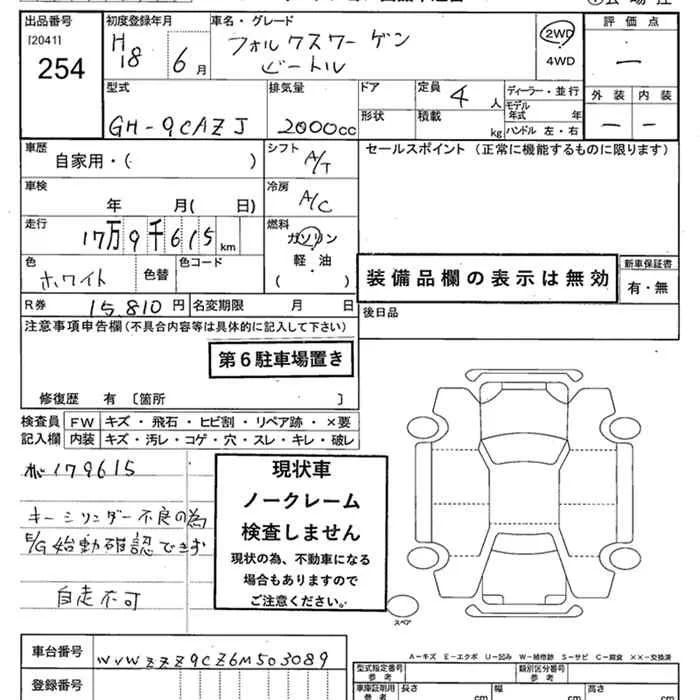 出品番号 初度登録年月 車名・グレード 評価点
120411 H18 6月 フォルクスワーゲン 2WD —
254 ビートル 4WD
型式 排気量 ドア 定員 4人 ディーラー・並行 外装 内装
GH-9CAZJ 2000cc 形状 積載 kg モデル年式 年 — —
ハンドル 左・右
車歴 シフト セールスポイント (正常に機能するものに限ります)
自家用・( ) A/T
車検 冷房
年 月( 日) A/C
走行 燃料
17万9千615km ガソリン
色 色替 色コード 軽・油 装備品欄の表示は無効 新車保証書
ホワイト ( ) 有・無
R券 15,810円 名変期限 月 日 後日品
注意事項申告欄(不具合内容等は具体的に記入して下さい)
第6駐車場置き
修復歴 有 〔箇所 〕
検査員 FW キズ・飛石・ヒビ割・リペア跡・×要
記入欄 内装 キズ・汚レ・コゲ・穴・スレ・キレ・破レ
179615
現状車
ノークレーム
検査しません
現状の為、不動車になる
場合もありますので
ご注意ください。
キーシリンダー不良の為
E/G始動確認できず
自走不可
スペア
A-キズ E-エクボ U-凹み W-補修跡 S-サビ C-腐食 ××-交換済
車台番号 WVWZZZ9CZ6M503089 型式指定番号 参考 類別区分番号 参考
登録番号 車庫証明用 参考 長さ cm 幅 cm 高さ cm